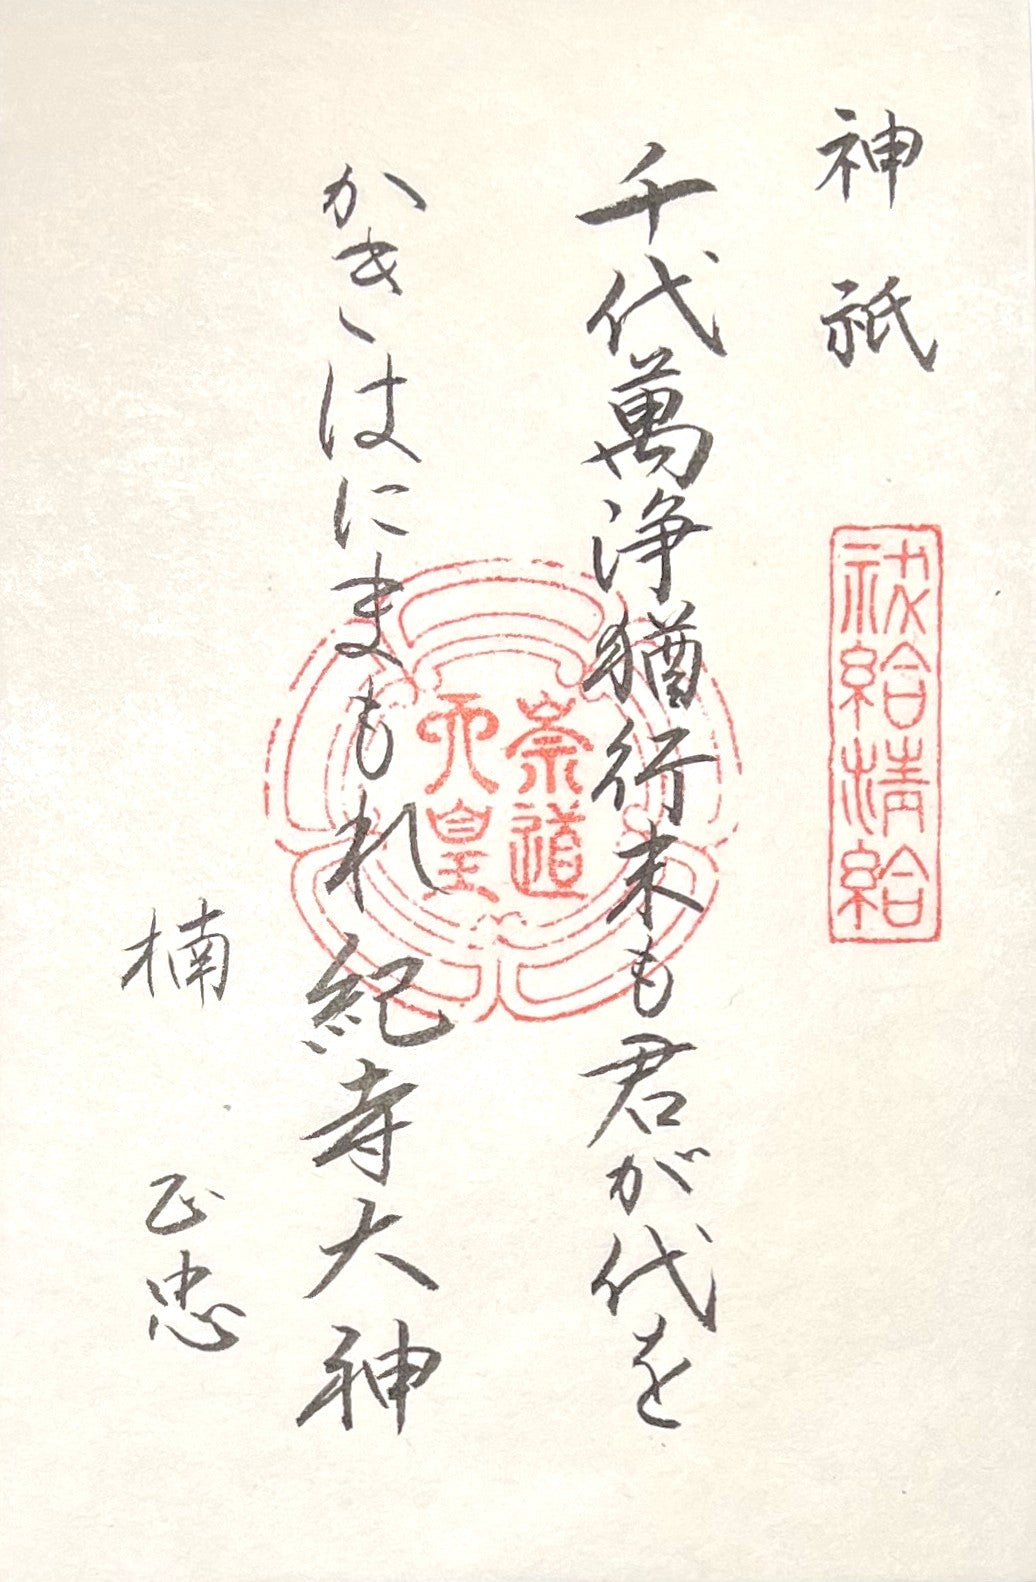 神祇
祓給清給
千代萬浄猶行末も君が代を
かきはにまもれ紀寺大神
崇道
天皇
楠 正忠